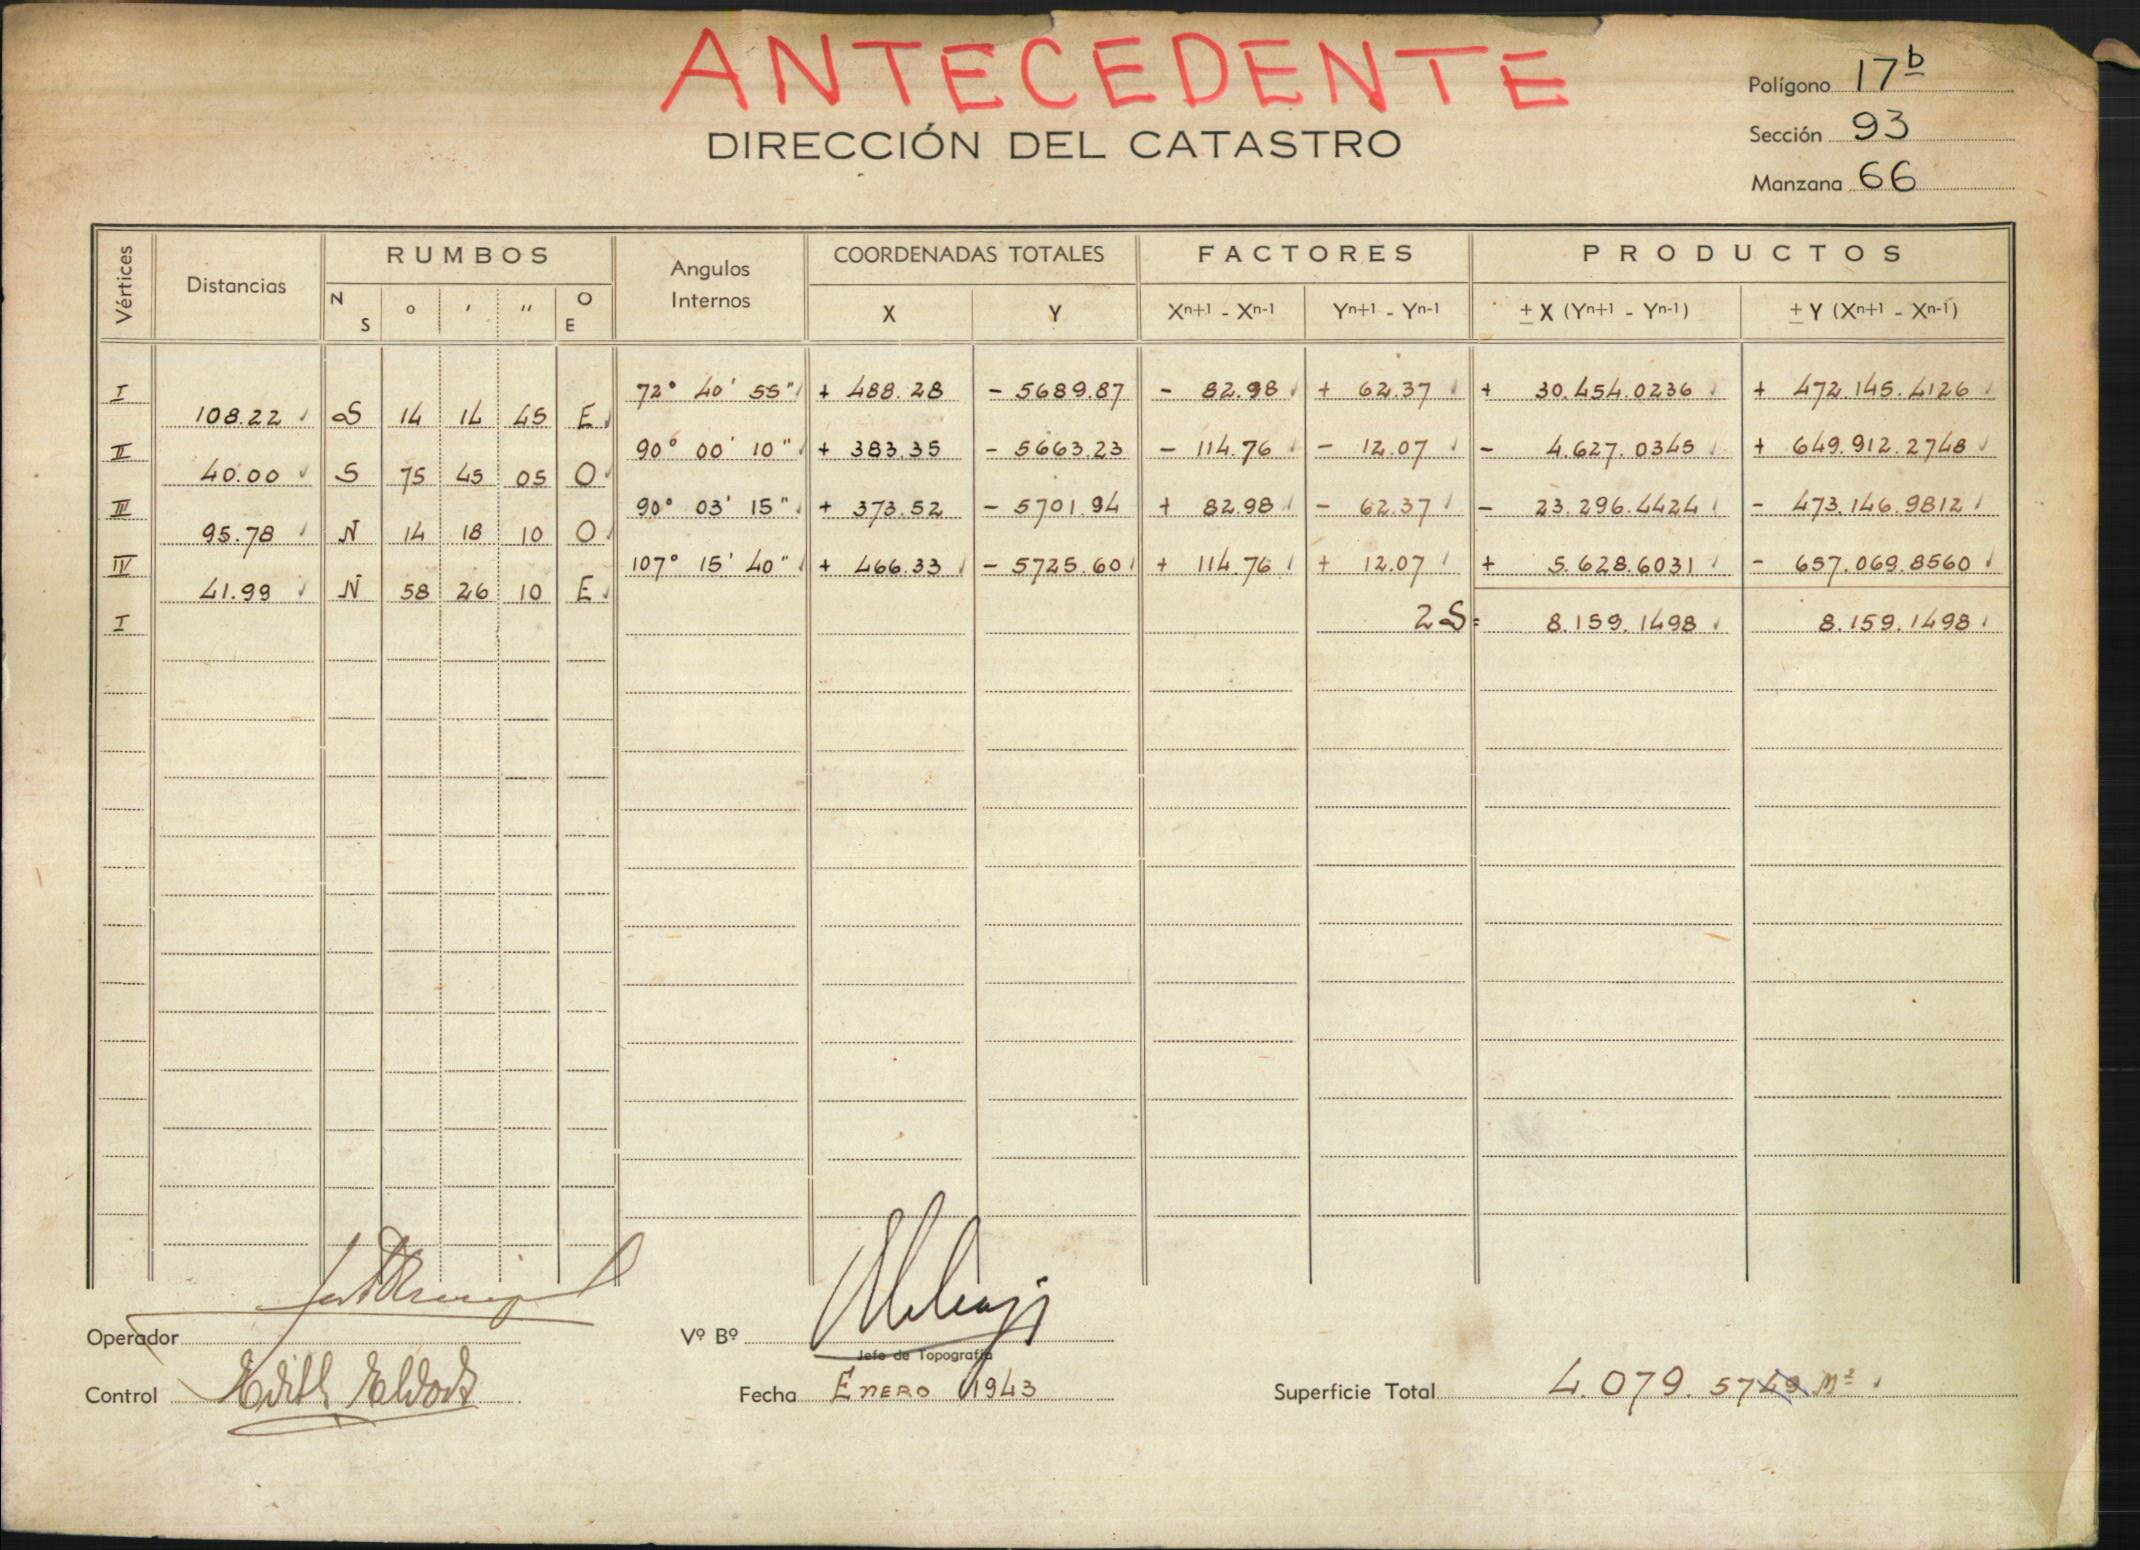 ANTECEDENTE
DIRECCIÓN DEL CATASTRO
Polígono 17b
Sección 93
Manzana 66
Vértices Distancias RUMBOS Angulos Internos COORDENADAS TOTALES FACTORES PRODUCTOS
N S ° ' " O E X Y Xn+1 - Xn-1 Yn+1 - Yn-1 ± X (Yn+1 - Yn-1) ± Y (Xn+1 - Xn-1)
I 72° 40' 55" + 488.28 - 5689.87 - 82.98 + 62.37 + 30.454.0236 + 472.145.4126
108.22 S 14 14 45 E
II 90° 00' 10" + 383.35 - 5663.23 - 114.76 - 12.07 - 4.627.0345 + 649.912.2748
40.00 S 75 45 05 O
III 90° 03' 15" + 373.52 - 5701.94 + 82.98 - 62.37 - 23.296.4424 - 473.146.9812
95.78 N 14 18 10 O
IV 107° 15' 40" + 466.33 - 5725.60 + 114.76 + 12.07 + 5.628.6031 - 657.069.8560
41.99 N 58 26 10 E
I 2S= 8.159.1498 8.159.1498
Operador
Vº Bº
Jefe de Topografía
Control Edith
Fecha ENERO 1943
Superficie Total 4.079.5749 M²